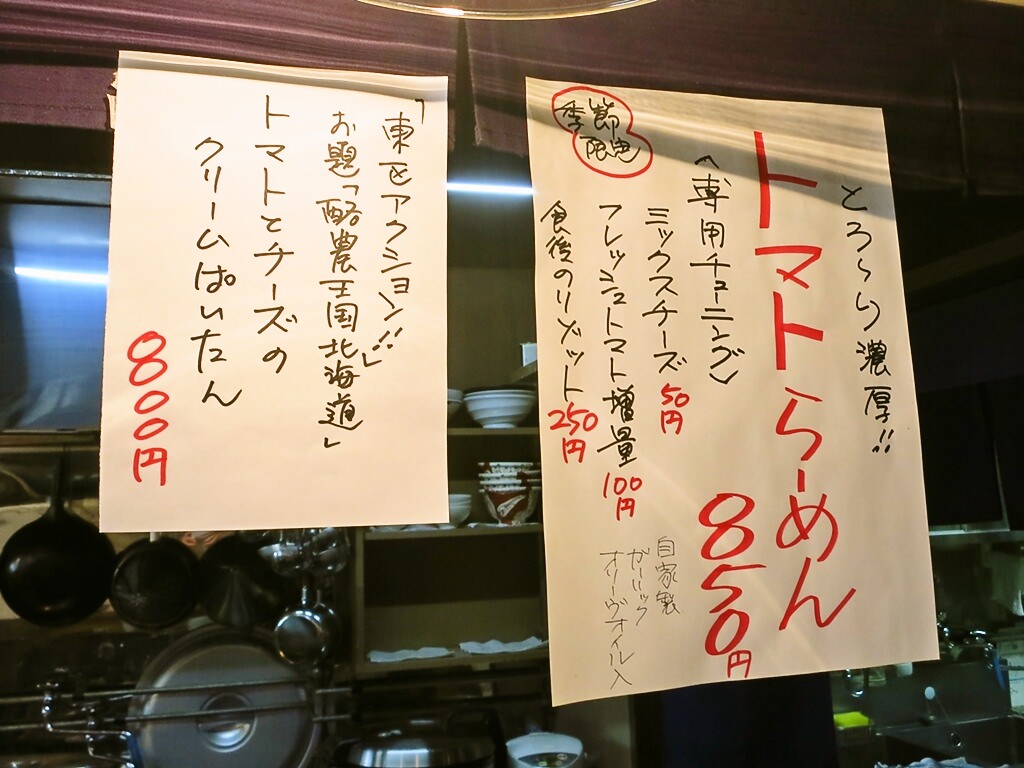 とろ〜り濃厚!!
トマトらーめん
850円
〈専用チューニング〉
ミックスチーズ 50円
フレッシュトマト増量 100円
食後のリゾット 250円
季節
限定
自家製
ガーリック
オリーヴオイル入
「東区アクション!!」
お題「酪農王国北海道」
トマトとチーズの
クリームぱいたん
800円